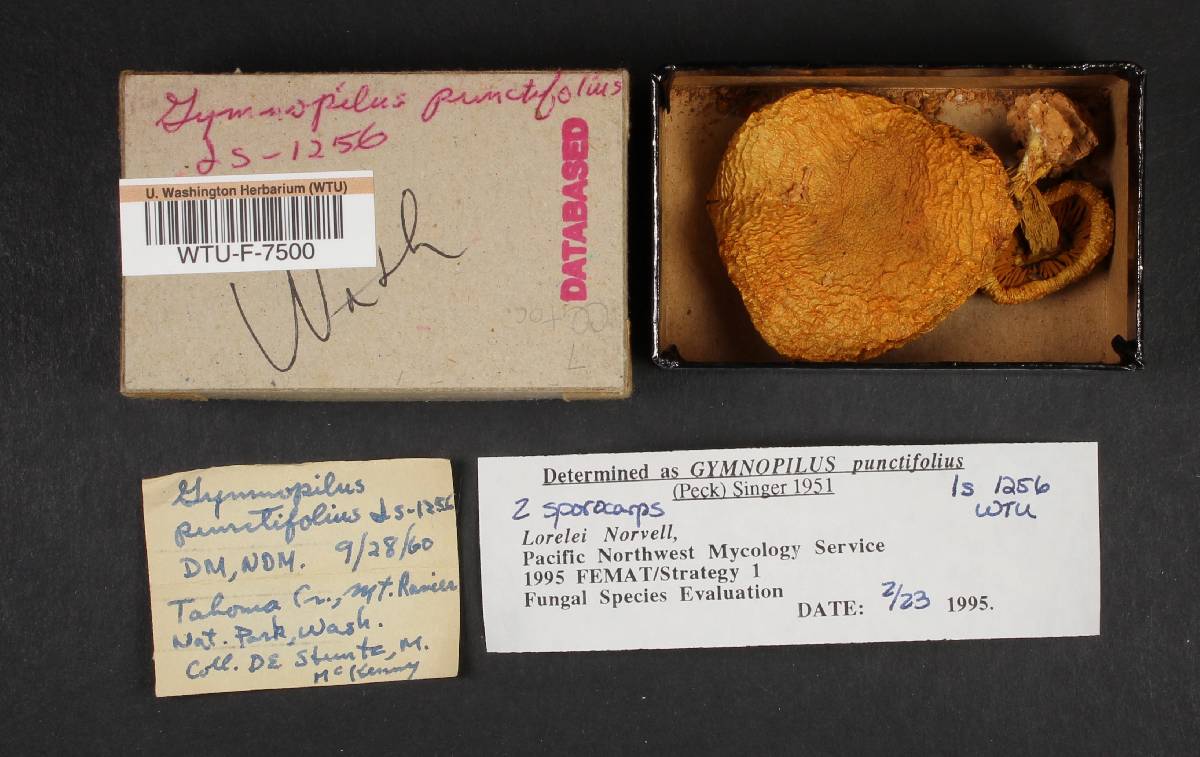 Gymnopilus punctifolius
Ls-1256
U. Washington Herbarium (WTU)
WTU-F-7500
Wash
DATABASED
Gymnopilus
punctifolius Ls-1256
DM, NDM. 9/28/60
Tahoma Cr., Mt. Ranier
Nat. Park, Wash.
Coll. DE Stuntz, M.
McKenny
Determined as GYMNOPILUS punctifolius
(Peck) Singer 1951
2 sporocarps
ls 1256
WTU
Lorelei Norvell,
Pacific Northwest Mycology Service
1995 FEMAT/Strategy 1
Fungal Species Evaluation
DATE: 2/23 1995.